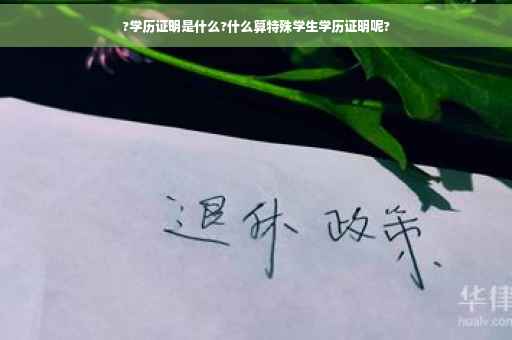 ?学历证明是什么?什么算特殊学生学历证明呢?
退休 政策
华律
hualv.com